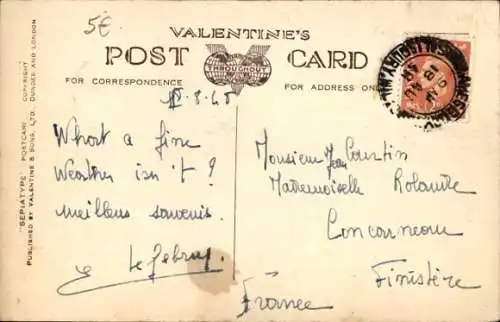 5€
VALENTINE'S
POST CARD
THROUGHOUT
FOR CORRESPONDENCE
FOR ADDRESS ONLY
"SEPIATYPE" POSTCARD. COPYRIGHT.
PUBLISHED BY VALENTINE & SONS, LTD., DUNDEE AND LONDON
What a fine
Weather isn't?
meilleurs souvenirs.
Monsieur Jean Courtin
Mademoiselle Rolande
Concarneau
Finistère
France